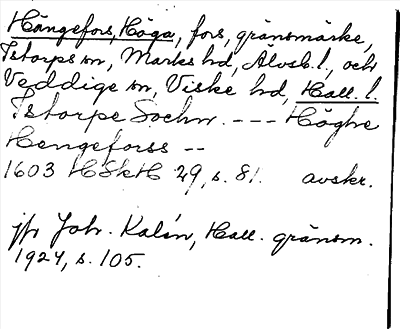 Hängefors, Höga, fors, gränsmärke,
Istorps sn, Marks hd, Älvsb. l., och
Veddige sn, Viske hd, Hall. l.
Istorpe Sochn. --- Höghe
Hengeforss --
1603 HSkH 29, s. 81. avskr.
jfr Joh. Kalén, Hall. gränsm.
1924, s. 105.